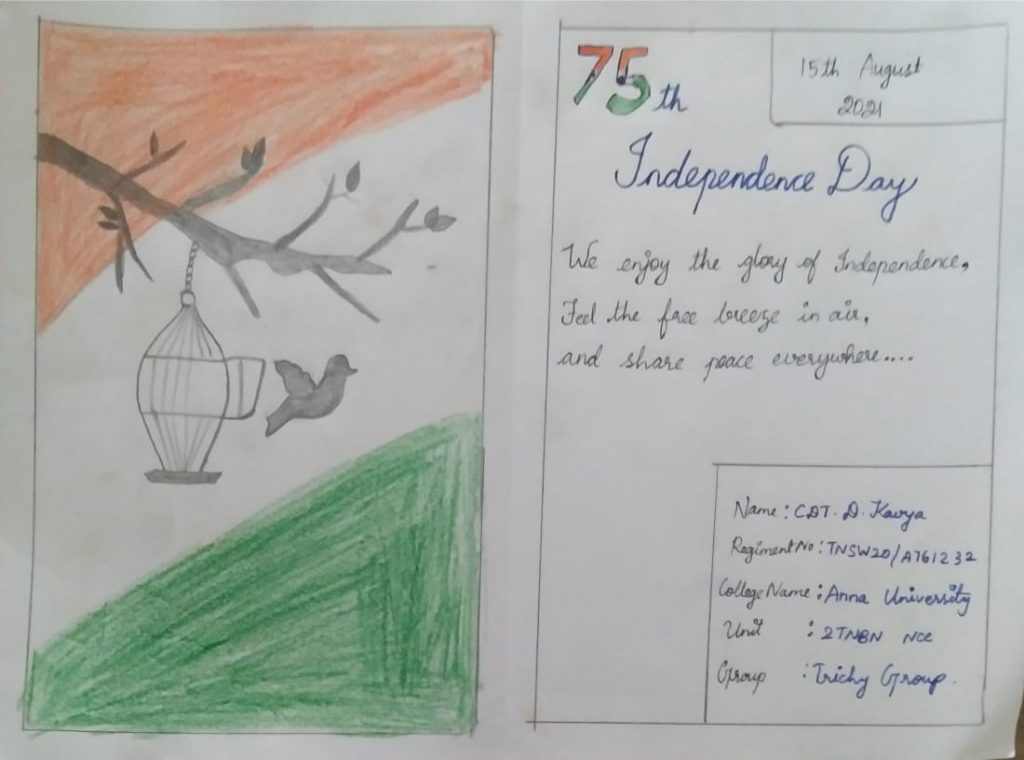 75th
15th August
2021
Independence Day
We enjoy the glory of Independence,
Feel the free breeze in air,
and share peace everywhere....
Name : CDT. D. Kavya
Regiment No : TNSW20/A761232
College Name : Anna University
Unit : 2TNBN NCC
Group : Trichy Group.